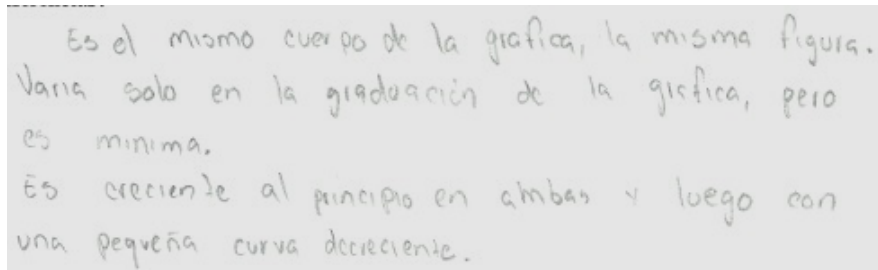 Es el mismo cuerpo de la grafica, la misma figura.
Varia solo en la graduación de la grafica, pero
es minima.
Es creciente al principio en ambas y luego con
una pequeña curva decreciente.